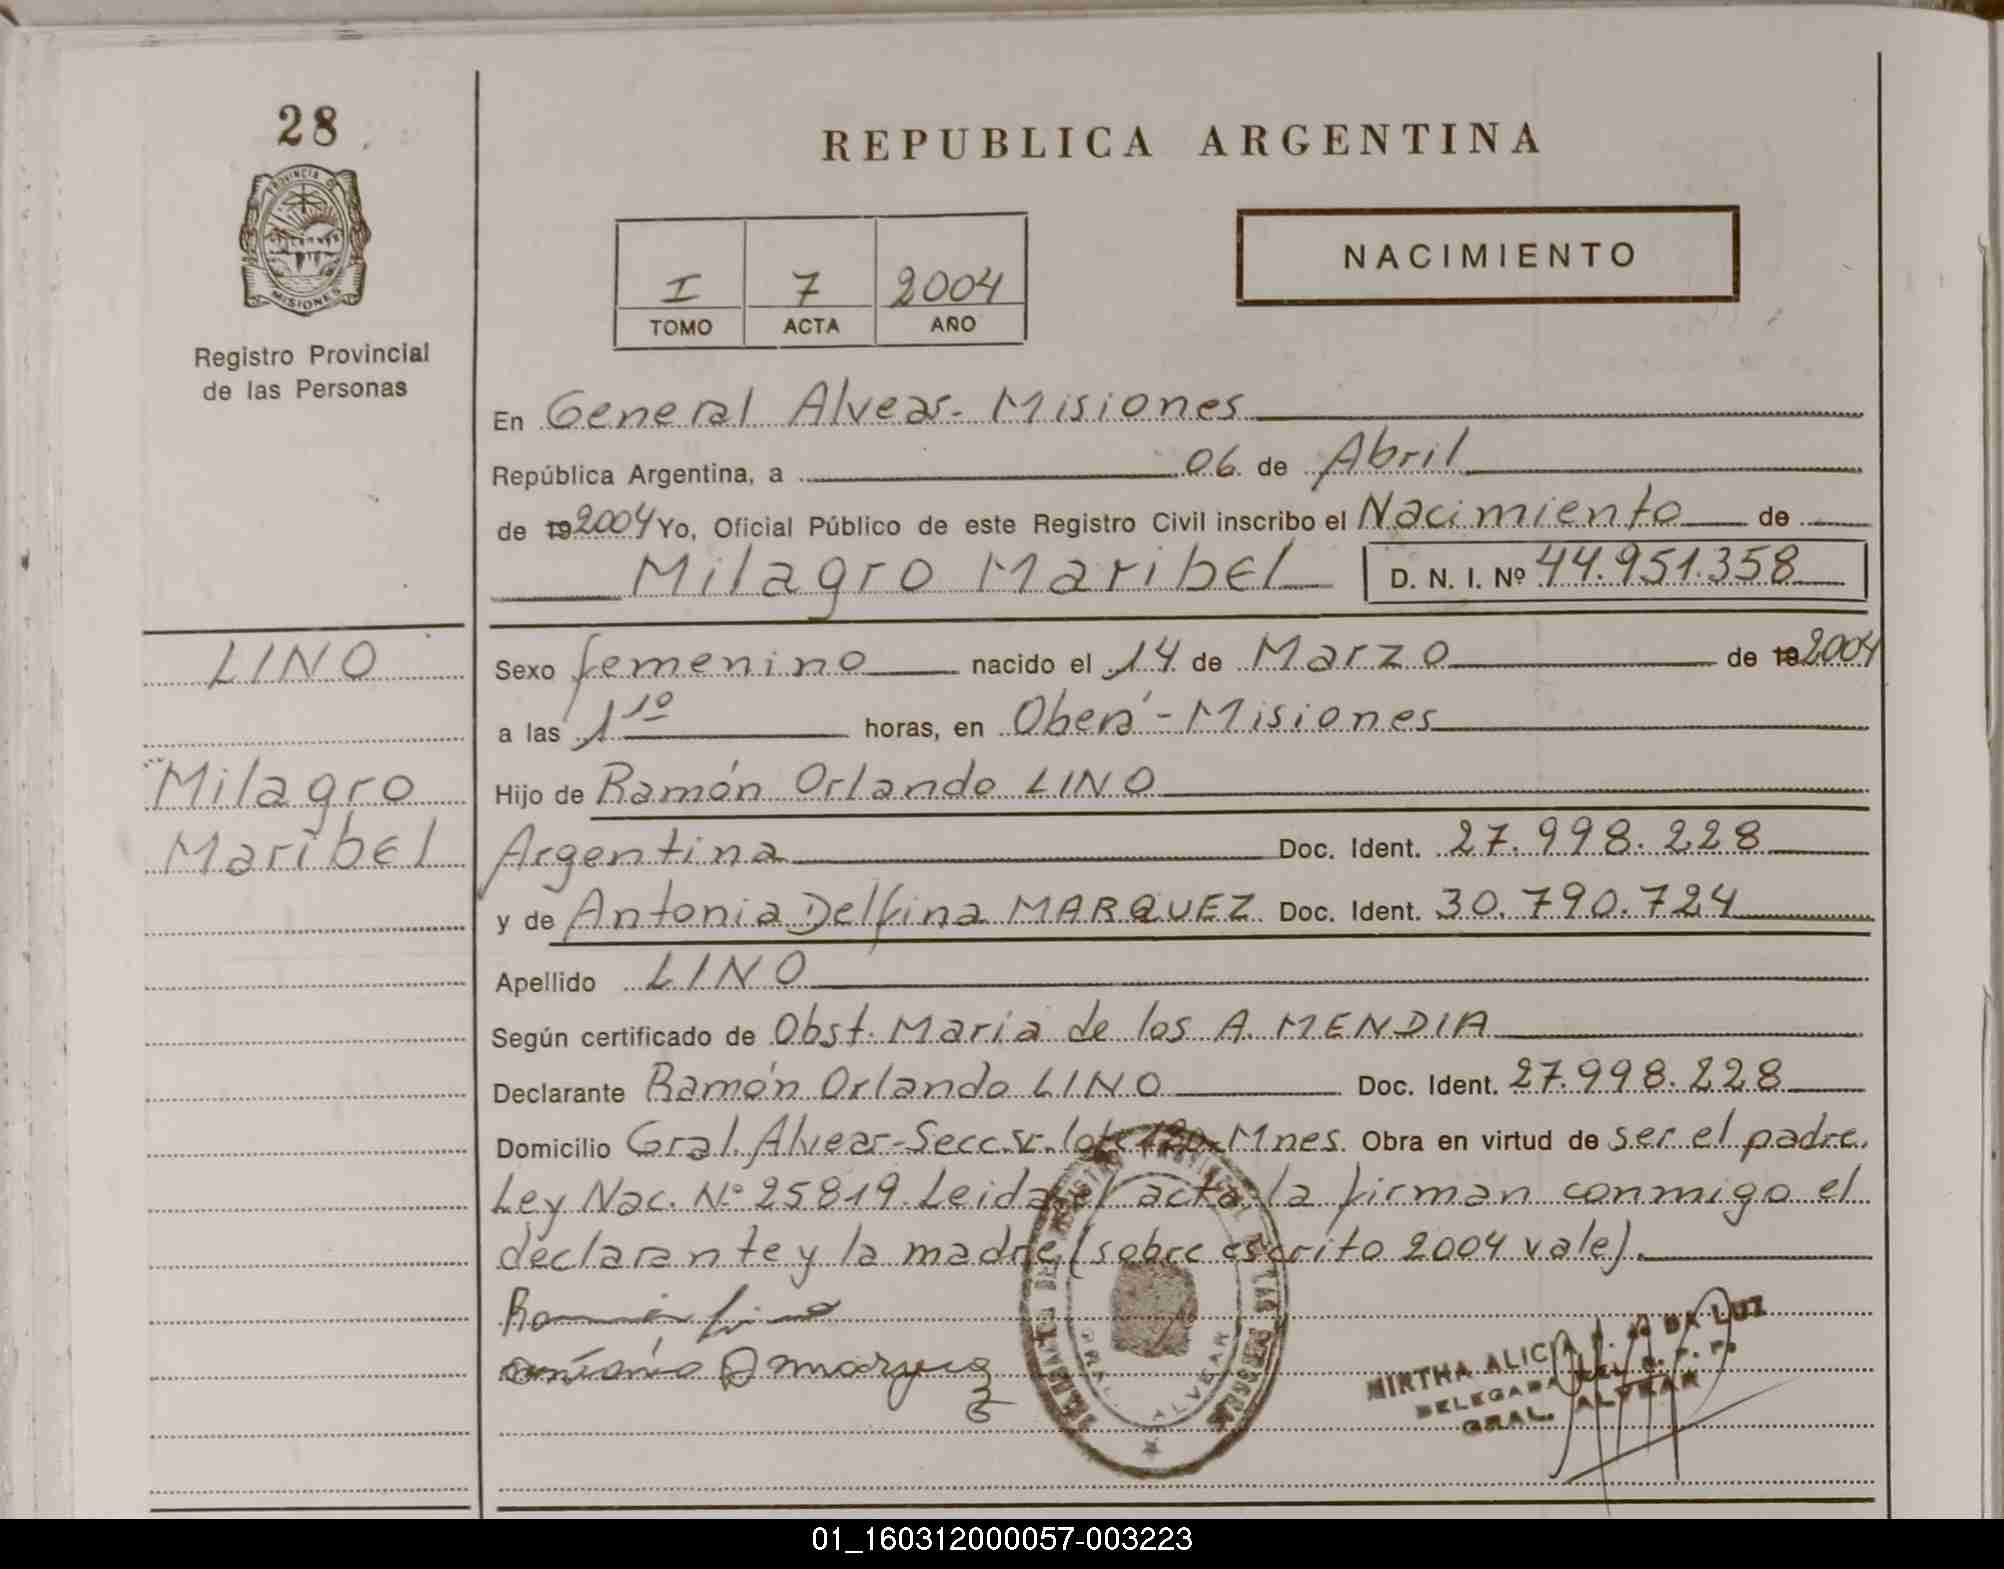 28
PROVINCIA DE
MISIONES
Registro Provincial
de las Personas
REPUBLICA ARGENTINA
I 7 2004
TOMO ACTA AÑO
NACIMIENTO
En General Alvear - Misiones
República Argentina, a 06 de Abril
de 19 2004 Yo, Oficial Público de este Registro Civil inscribo el Nacimiento de
Milagro Maribel D. N. I. Nº 44.951.358
LINO
Milagro
Maribel
Sexo femenino nacido el 14 de Marzo de 19 2004
a las 1 10 horas, en Oberá - Misiones
Hijo de Ramón Orlando LINO
Argentina Doc. Ident. 27.998.228
y de Antonia Delfina MARQUEZ Doc. Ident. 30.790.724
Apellido LINO
Según certificado de Obst. Maria de los A. MENDIA
Declarante Ramón Orlando LINO Doc. Ident. 27.998.228
Domicilio Gral. Alvear - Secc. lote Mnes. Obra en virtud de ser el padre.
Ley Nac. Nº 25819. Leida el acta la firman conmigo el
declarante y la madre (sobre escrito 2004 vale).
MIRTHA ALICIA DA LUZ
DELEGADA DEL R. P. P.
GRAL. ALVEAR
GRAL. ALVEAR
01_160312000057-003223